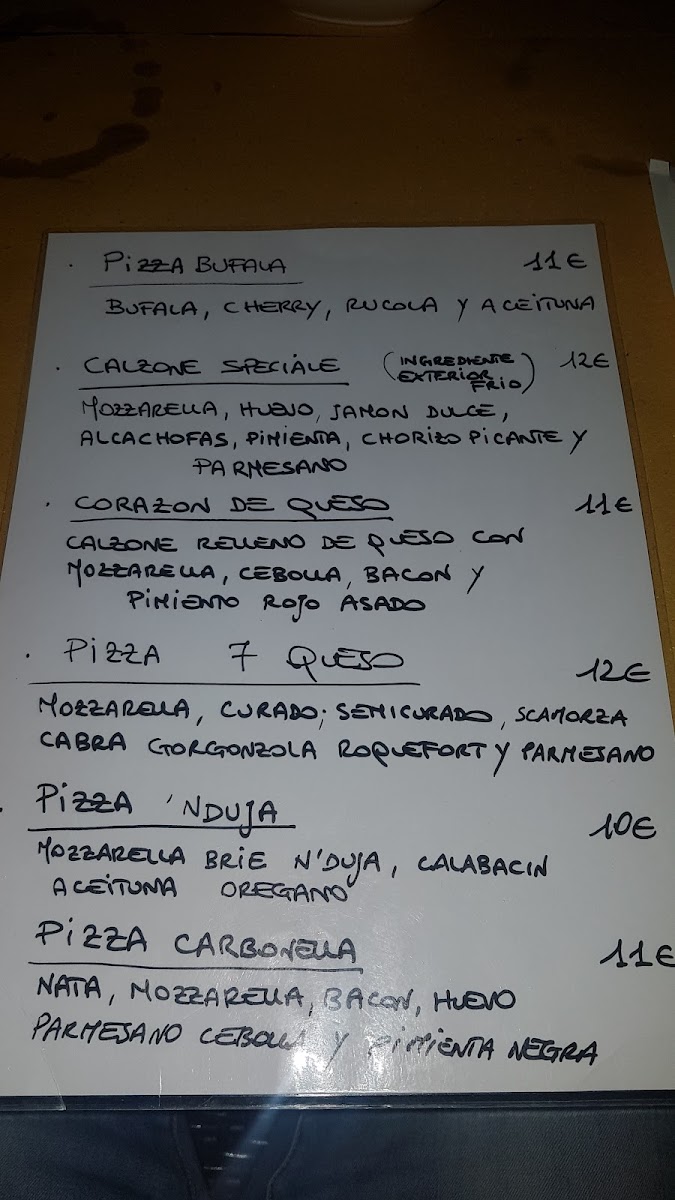 · PIZZA BUFALA 11€
BUFALA, CHERRY, RUCOLA Y ACEITUNA
· CALZONE SPECIALE (INGREDIENTE EXTERIOR FRIO) 12€
MOZZARELLA, HUEVO, JAMON DULCE,
ALCACHOFAS, PIMIENTA, CHORIZO PICANTE Y
PARMESANO
· CORAZON DE QUESO 11€
CALZONE RELLENO DE QUESO CON
MOZZARELLA, CEBOLLA, BACON Y
PIMIENTO ROJO ASADO
· PIZZA 7 QUESO 12€
MOZZARELLA, CURADO; SEMICURADO, SCAMORZA
CABRA GORGONZOLA ROQUEFORT Y PARMESANO
· PIZZA 'NDUJA 10€
MOZZARELLA BRIE N'DUJA, CALABACIN
ACEITUNA OREGANO
PIZZA CARBONELLA 11€
NATA, MOZZARELLA, BACON, HUEVO
PARMESANO CEBOLLA Y PIMIENTA NEGRA